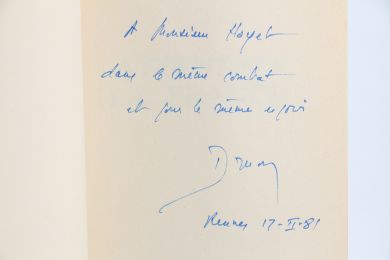 A Monsieur Hoyet
dans le même combat
et pour le même espoir
Druon
Rennes 17-II-81